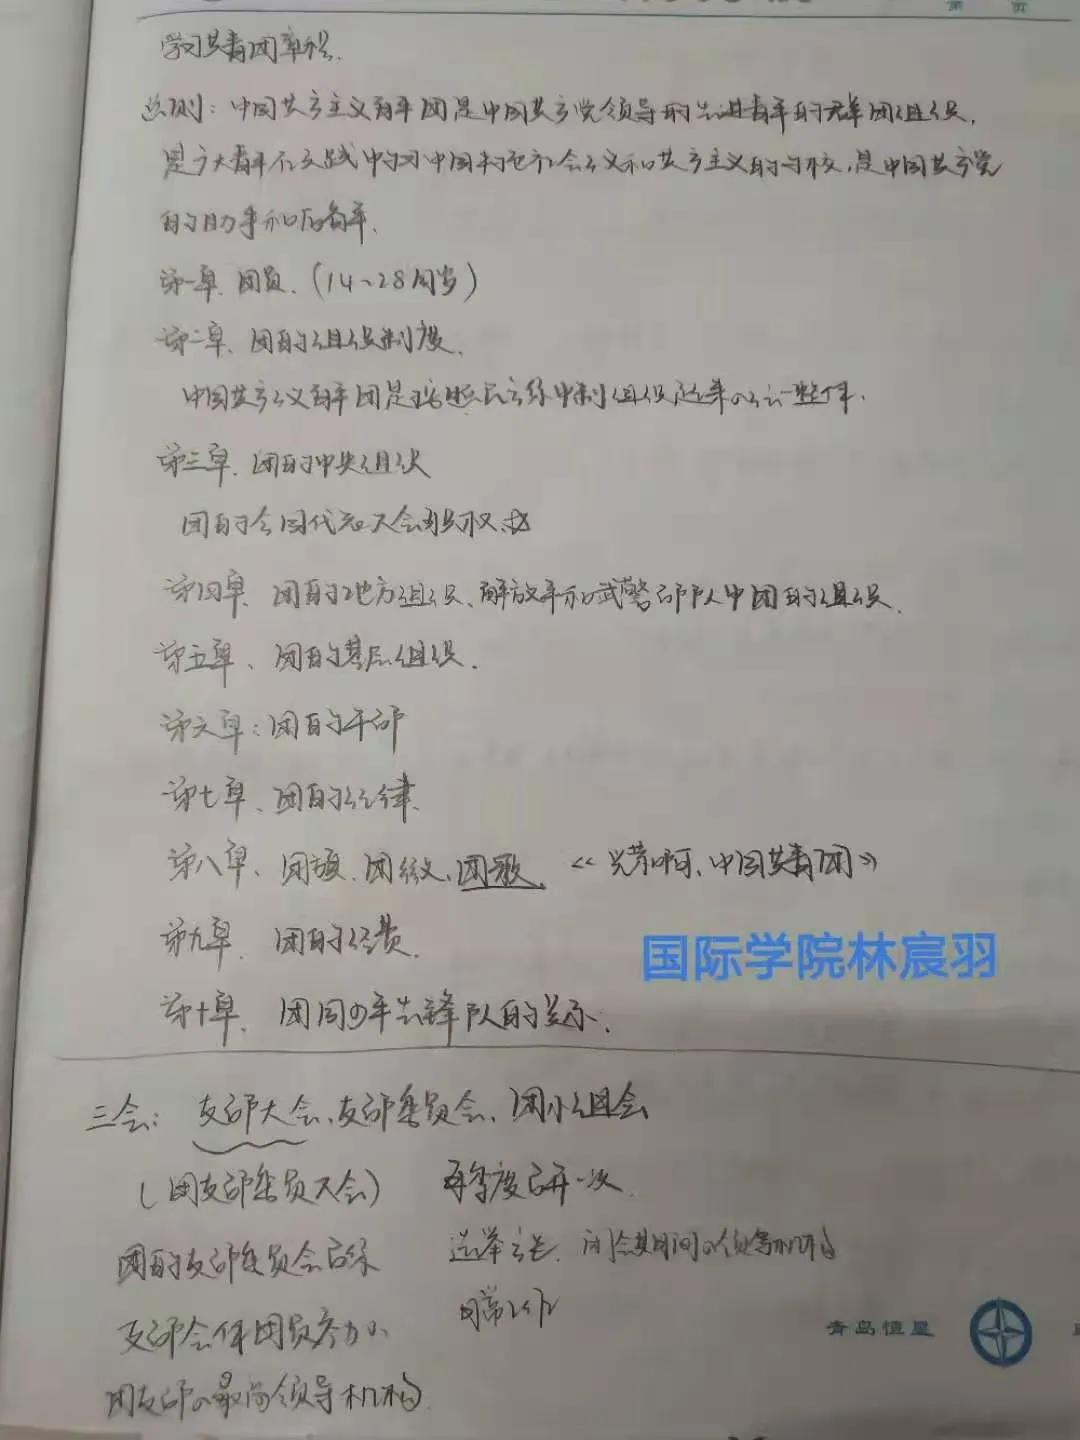 第 页
学习共青团章程.
总则：中国共产主义青年团是中国共产党领导的先进青年的群团组织，
是广大青年在实践中学习中国特色社会主义和共产主义的学校，是中国共产党
的助手和后备军.
第一章. 团员. (14~28周岁)
第二章. 团的组织制度.
中国共产主义青年团是按照民主集中制组织起来的统一整体.
第三章. 团的中央组织
团的全国代表大会的职权.
第四章. 团的地方组织、解放军和武警部队中团的组织.
第五章、团的基层组织.
第六章：团的干部
第七章、团的纪律.
第八章、团旗.团徽.团歌. 《光荣啊，中国共青团》
第九章. 团的经费.
国际学院林宸羽
第十章. 团同少年先锋队的关系.
三会：支部大会、支部委员会、团小组会
(团支部委员大会) 每季度召开一次.
团的支部委员会 选举产生. 闭会期间的领导机构
支部全体团员参加 日常工作
团支部的最高领导机构.
青岛恒星